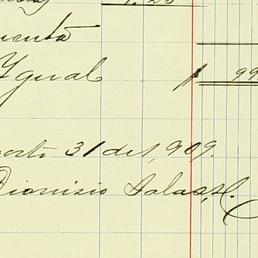 1.25
cuenta
Ygual $ 99
osto 31 del 1,909.
Dionisio Salas, H.